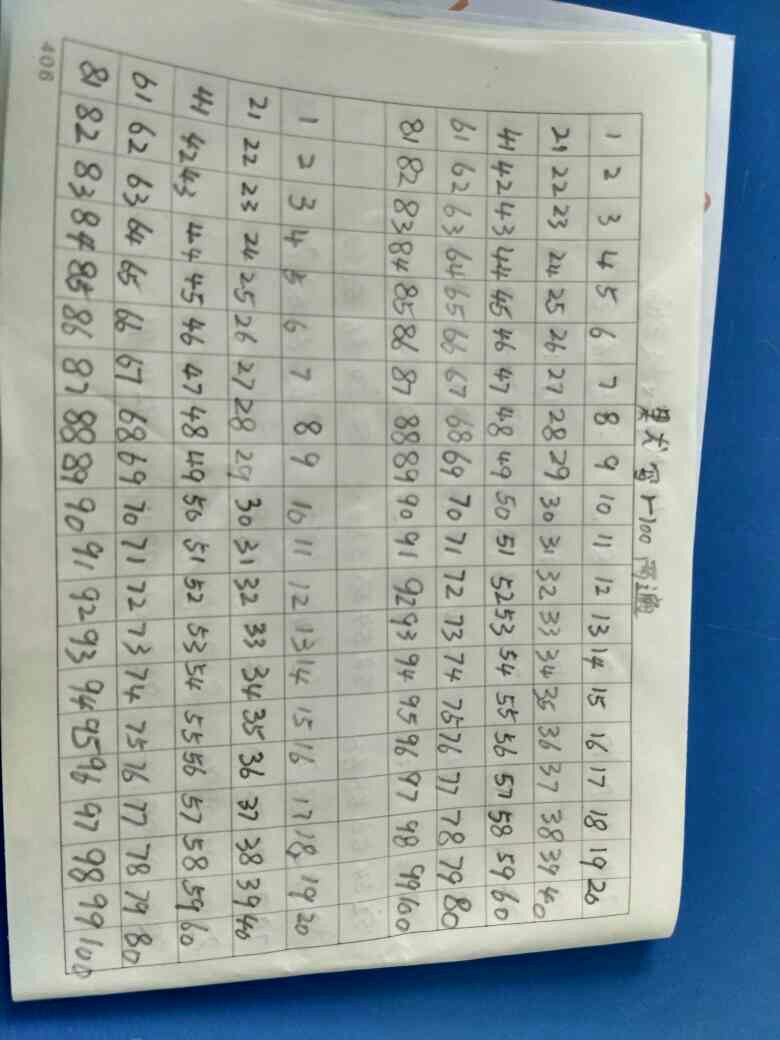 写1-100两遍
1 2 3 4 5 6 7 8 9 10 11 12 13 14 15 16 17 18 19 20
21 22 23 24 25 26 27 28 29 30 31 32 33 34 35 36 37 38 39 40
41 42 43 44 45 46 47 48 49 50 51 52 53 54 55 56 57 58 59 60
61 62 63 64 65 66 67 68 69 70 71 72 73 74 75 76 77 78 79 80
81 82 83 84 85 86 87 88 89 90 91 92 93 94 95 96 97 98 99 100
1 2 3 4 5 6 7 8 9 10 11 12 13 14 15 16 17 18 19 20
21 22 23 24 25 26 27 28 29 30 31 32 33 34 35 36 37 38 39 40
41 42 43 44 45 46 47 48 49 50 51 52 53 54 55 56 57 58 59 60
61 62 63 64 65 66 67 68 69 70 71 72 73 74 75 76 77 78 79 80
81 82 83 84 85 86 87 88 89 90 91 92 93 94 95 96 97 98 99 100
406